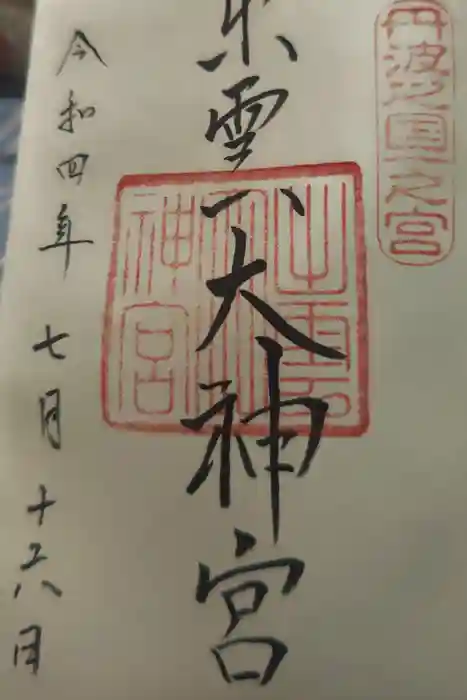 丹波之国一之宮
出雲大神宮
出雲
神宮
令和四年七月十六日